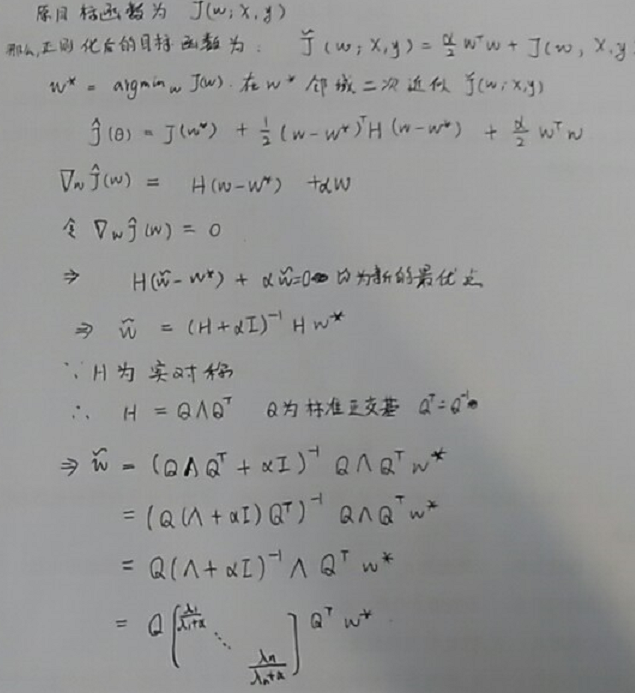 原目标函数为 J(w; X, y)
那么,正则化后的目标函数为: J̃(w; X, y) = α/2 wᵀw + J(w, X, y
w* = argmin_w J(w). 在 w* 邻域二次近似 J̃(w; X, y)
Ĵ(θ) = J(w*) + 1/2 (w-w*)ᵀH(w-w*) + α/2 wᵀw
∇_w Ĵ(w) = H(w-w*) + αw
令 ∇_w Ĵ(w) = 0
⇒ H(w̃-w*) + αw̃=0 w̃为新的最优点
⇒ w̃ = (H+αI)⁻¹ H w*
∵ H为实对称
∴ H = QΛQᵀ Q为标准正交基 Qᵀ=Q⁻¹
⇒ w̃ = (QΛQᵀ + αI)⁻¹ QΛQᵀ w*
= (Q(Λ+αI)Qᵀ)⁻¹ QΛQᵀ w*
= Q(Λ+αI)⁻¹ Λ Qᵀ w*
= Q [λ₁/(λ₁+α) ⋱ λₙ/(λₙ+α)] Qᵀ w*